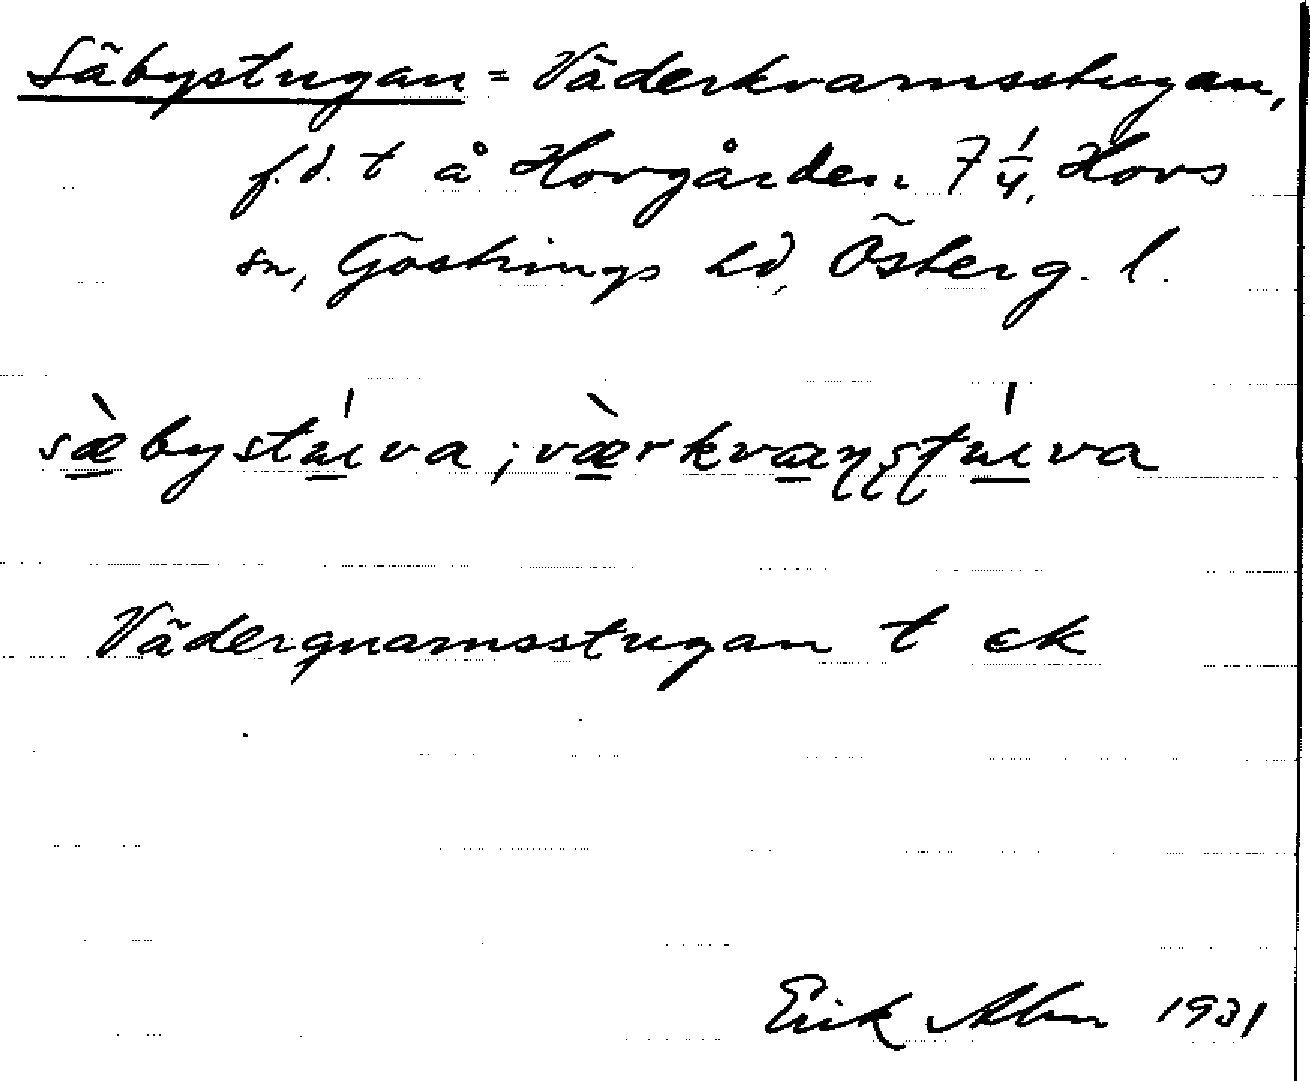 Säbystugan = Väderkvarnsstugan,
f.d. t å Hovgården 7 1/4, Hovs
sn, Göstrings hd, Österg. l.
sæ̀bystúva ; væ̀rkvaɳʂʈúva
Väderquarnsstugan t ek
Erik Alm 1931